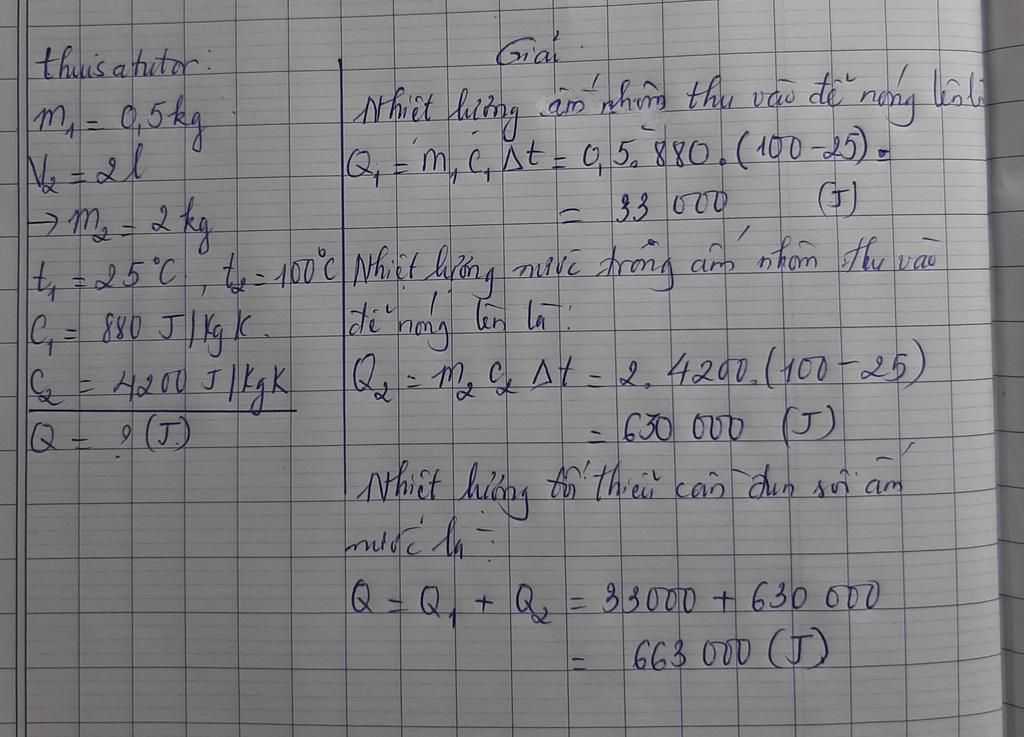 thuisatutor:
m₁ = 0,5 kg
V₂ = 2l
→ m₂ = 2 kg
t₁ = 25°C, t₂ = 100°C
C₁ = 880 J/kg K.
C₂ = 4200 J/kgK
Q = ? (J)
Giải
Nhiệt lượng ấm nhôm thu vào để nóng lên là
Q₁ = m₁ C₁ Δt = 0,5.880.(100-25) =
= 33 000 (J)
Nhiệt lượng nước trong ấm nhôm thu vào
để nóng lên là:
Q₂ = m₂ C₂ Δt = 2.4200.(100-25)
= 630 000 (J)
Nhiệt lượng tối thiểu cần đun sôi ấm
nước là:
Q = Q₁ + Q₂ = 33000 + 630 000
= 663 000 (J)